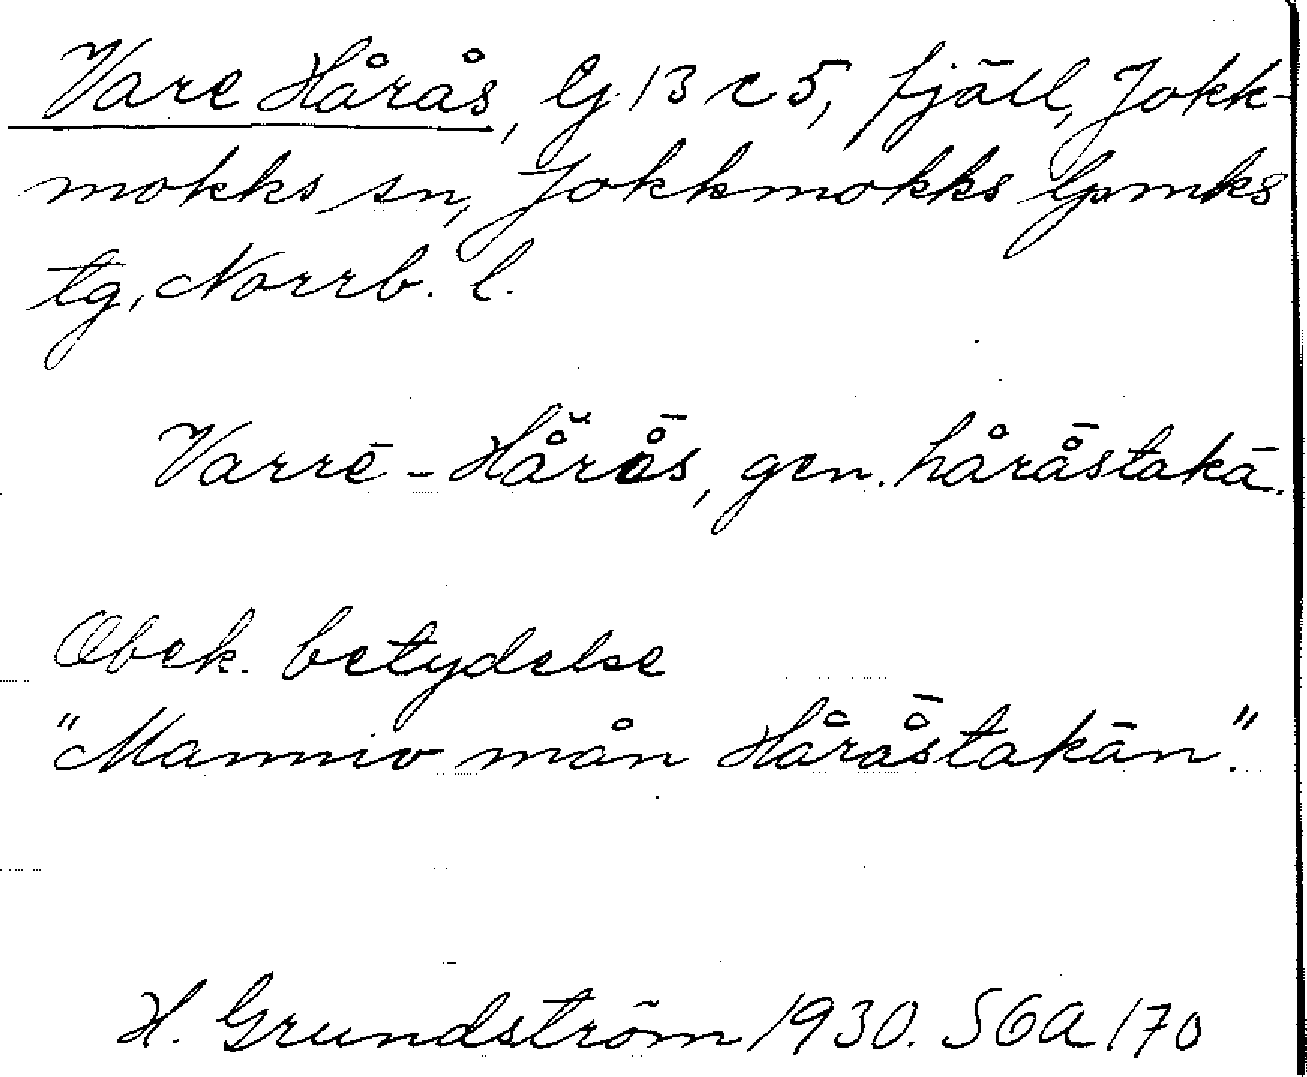 Vare Hårås, G 13 c 5, fjäll, Jokk-
mokks sn, Jokkmokks lpmks
tg, Norrb. l.
Varrē - Hå̆rå̄s, gen. hårå̄stakā.
Obek. betydelse
"Manniv mån Hårå̄stakān."
H. Grundström 1930. SGA 170